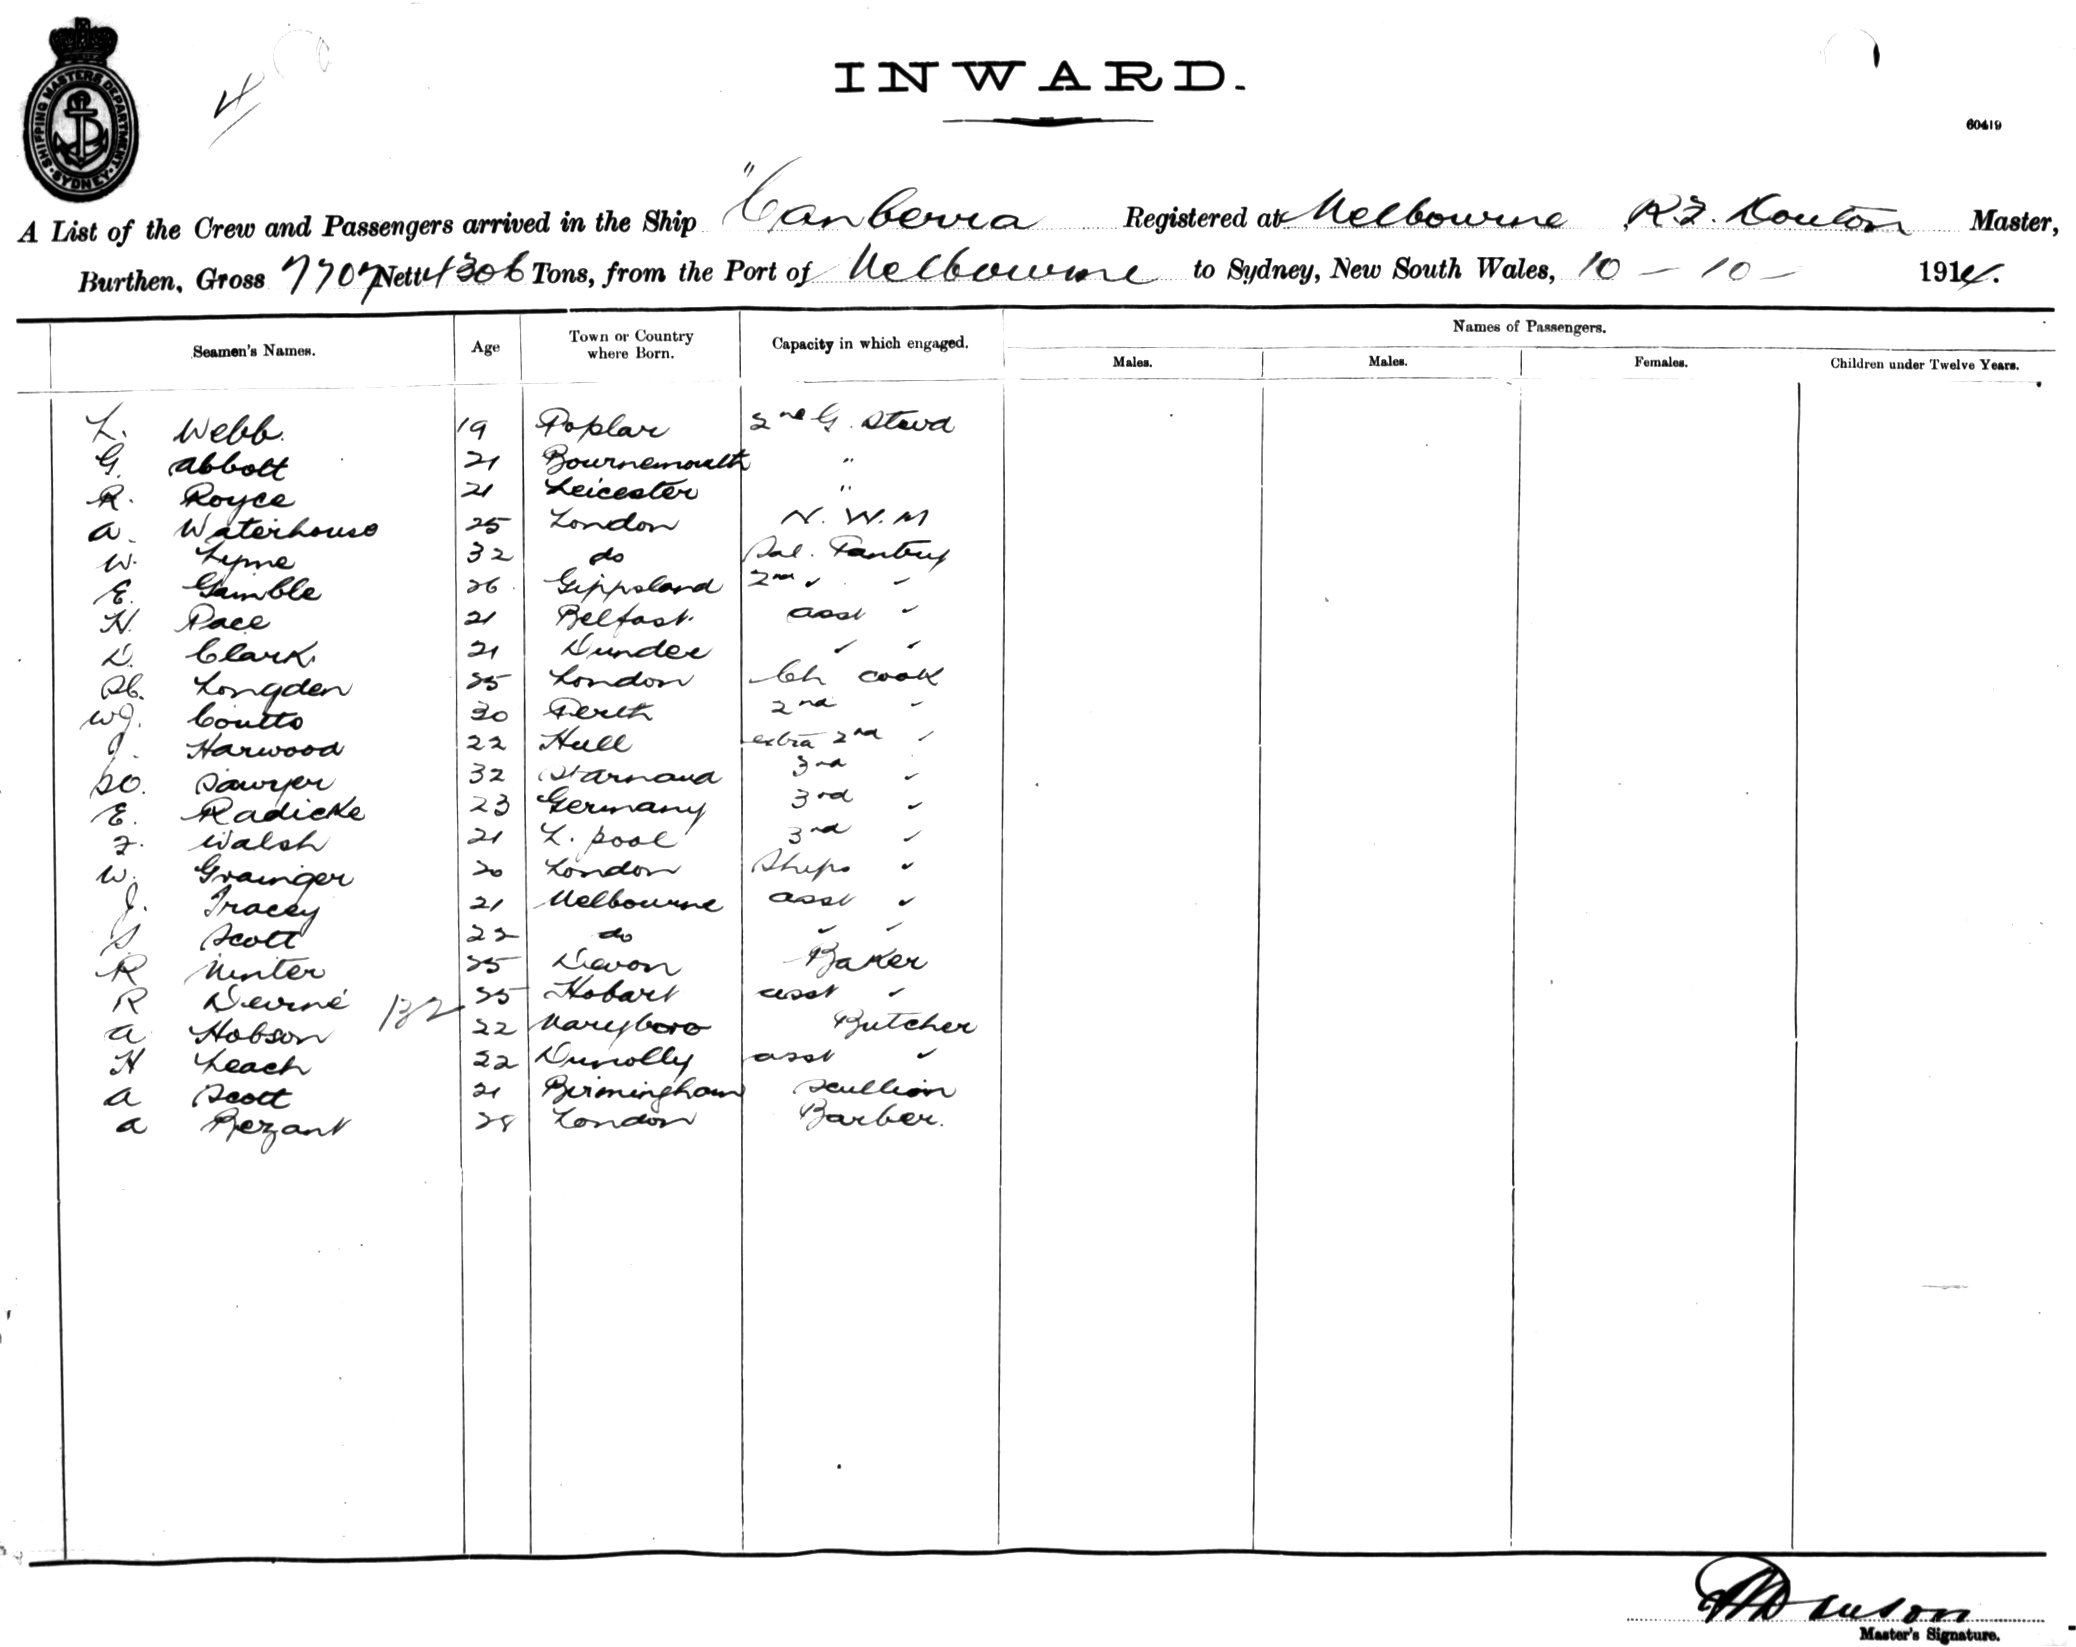 SHIPPING MASTERS DEPARTMENT
SYDNEY
INWARD.
60419
A List of the Crew and Passengers arrived in the Ship "Canberra Registered at Melbourne, R.J. Douton Master,
Burthen, Gross 7707 Nett 4306 Tons, from the Port of Melbourne to Sydney, New South Wales, 10 - 10 - 1914.
Seamen's Names. Age Town or Country where Born. Capacity in which engaged. Names of Passengers.
Males. Males. Females. Children under Twelve Years.
L. Webb. 19 Poplar 2nd G. Stewd
G. Abbott 21 Bournemouth "
R. Royce 21 Leicester "
A. Waterhouse 25 London N. W. M
W. Lyme 32 do Sal. Pantry
E. Gamble 26 Gippsland 2nd " "
H. Pace 21 Belfast. asst "
D. Clark. 21 Dundee " "
Longden 25 London Ch cook
WJ. Coutts 30 Perth 2nd "
J. Harwood 22 Hull extra 2nd "
Sawyer 32 St Arnaud 3rd "
E. Radicke 23 Germany 3rd "
F. Walsh 21 L. pool 3rd "
W. Grainger 20 London Ships "
J. Tracey 21 Melbourne asst "
S Scott 22 do " "
R Winter 25 Devon Baker
R 25 Hobart asst "
A Hobson 22 Maryboro Butcher
H Leach 22 Dunolly asst "
A Scott 21 Birmingham Scullion
A Bezant 28 London Barber.
Master's Signature.